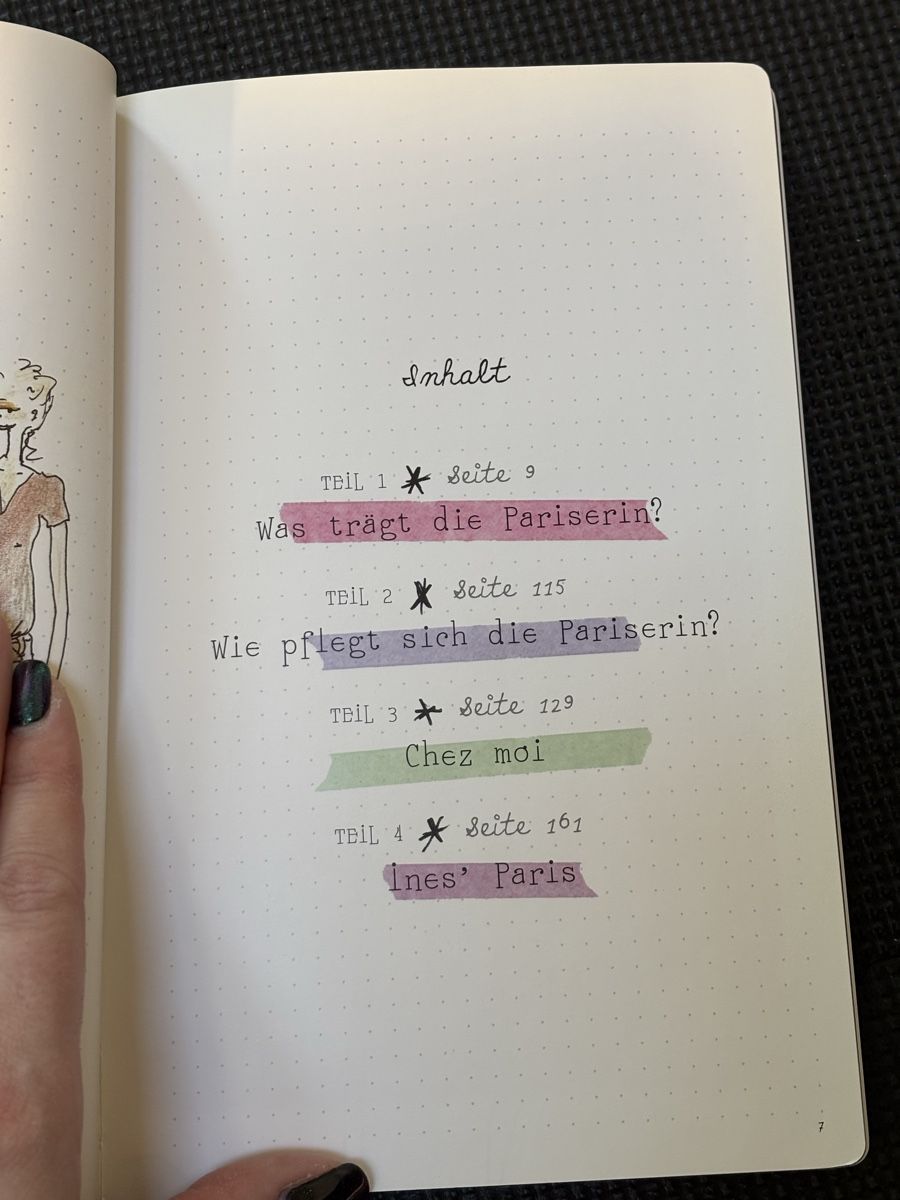 Inhalt
TEiL 1 * Seite 9
Was trägt die Pariserin?
TEiL 2 * Seite 115
Wie pflegt sich die Pariserin?
TEiL 3 * Seite 129
Chez moi
TEiL 4 * Seite 161
ines’ Paris
7